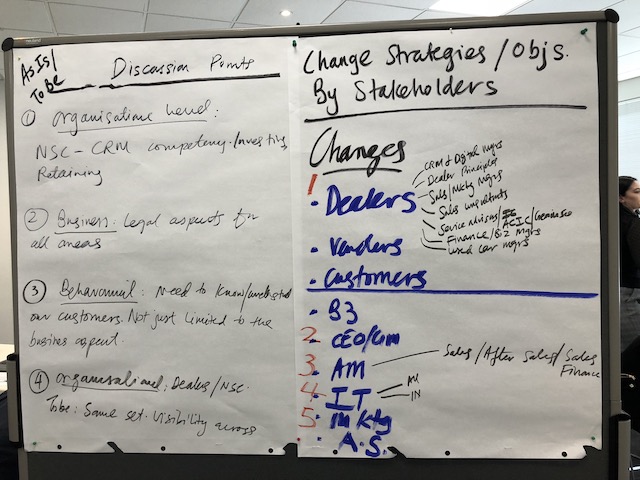 As Is/
To be
Discussion Points
① Organisational Level:
NSC - CRM competency. Investing
Retaining
② Business: Legal aspects for
all areas
③ Behavioural: Need to know/understand
our customers. Not just limited to the
busines aspect.
④ Organisational: Dealers/NSC.
To be: Same set. Visibility across
Change Strategies / Objs.
By Stakeholders
Changes
1 . Dealers
CRM & Digital Mgrs
Dealer Principles
Sales/Mktg Mgrs
Sales Consultants
Service Advisors/
Finance/Biz Mgrs
Used Car Mgrs
. Vendors
. Customers
. B3
2 . CEO/GM
3 . AM
Sales / After Sales / Sales
Finance
4 . IT
AU
IN
5 . Mktg
. A.S.